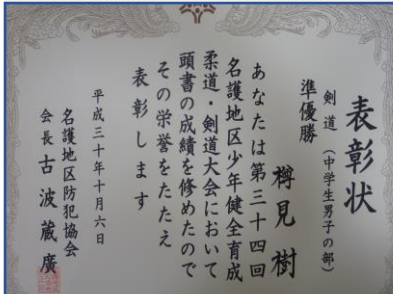 表彰状
剣道（中学生男子の部）
準優勝
樽見樹
あなたは第三十四回
名護地区少年健全育成
柔道・剣道大会において
頭書の成績を修めたので
その栄誉をたたえ
表彰します
平成三十年十月六日
名護地区防犯協会
会長古波蔵廣